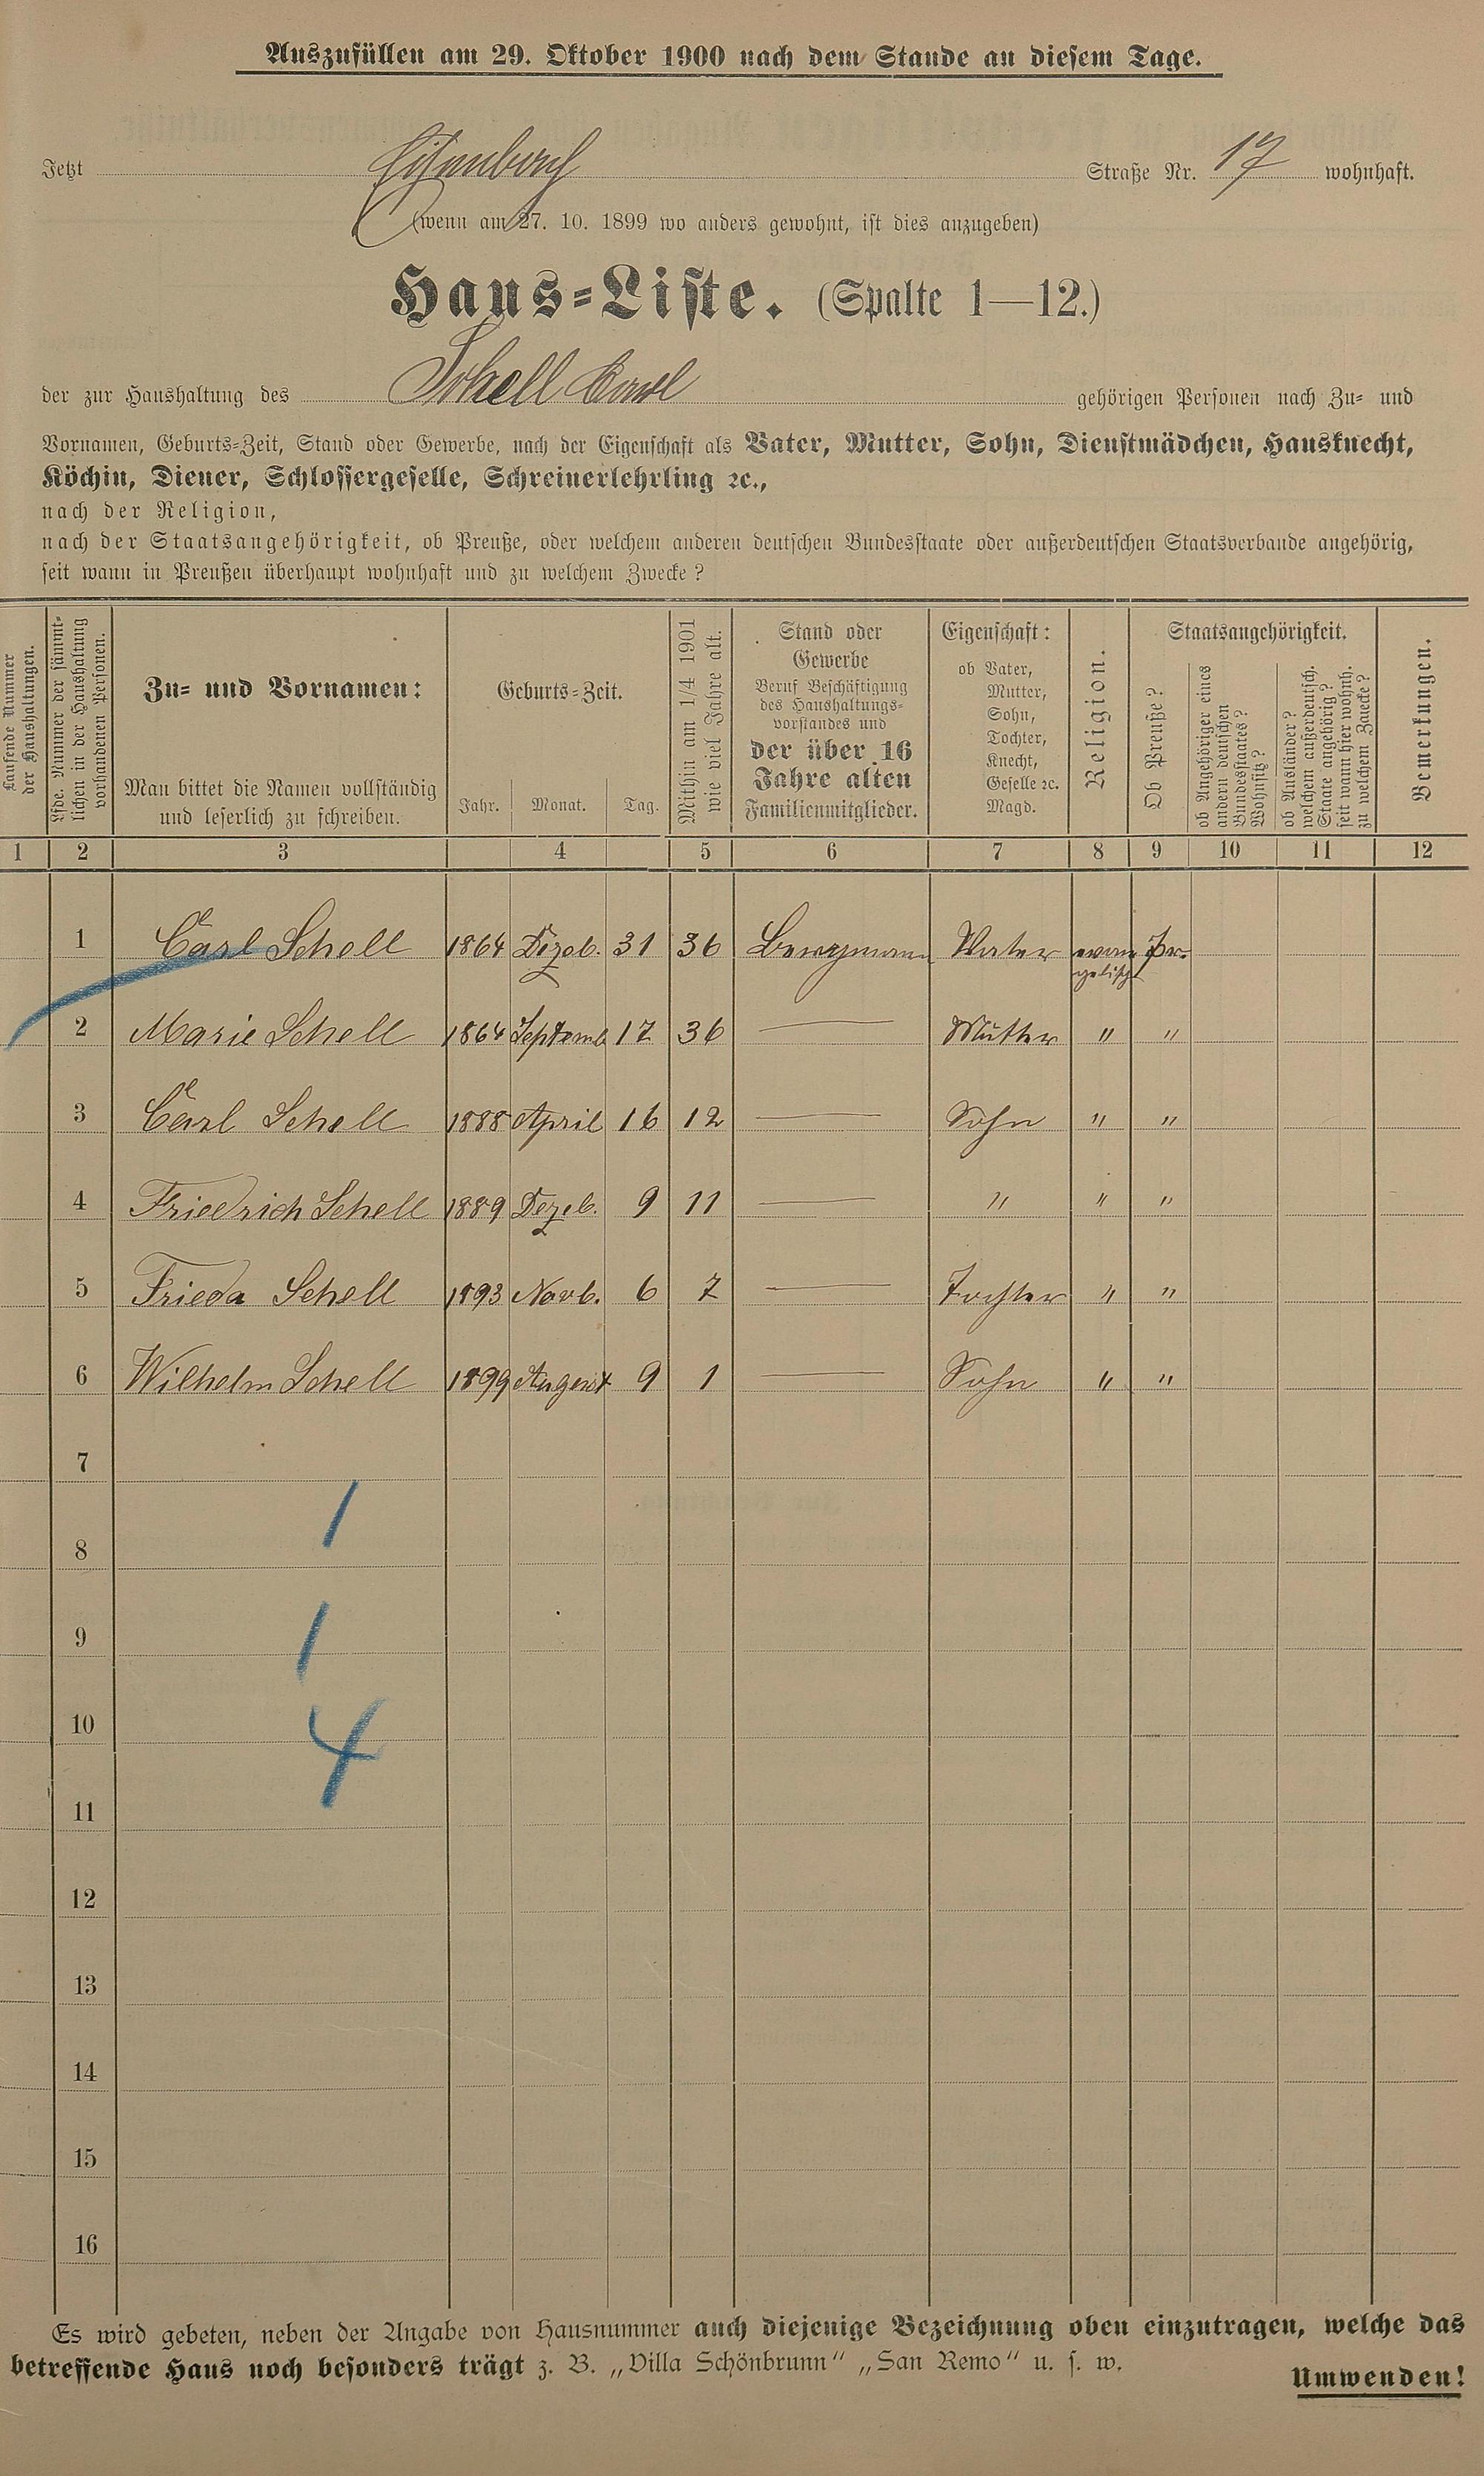 Auszufüllen am 29. Oktober 1900 nach dem Stande an diesem Tage.
Jetzt Straße Nr. 17 wohnhaft.
(wenn am 27. 10. 1899 wo anders gewohnt, ist dies anzugeben)
Haus=Liste. (Spalte 1—12.)
der zur Haushaltung des Schell Carl gehörigen Personen nach Zu= und
Vornamen, Geburts=Zeit, Stand oder Gewerbe, nach der Eigenschaft als Vater, Mutter, Sohn, Dienstmädchen, Hausknecht,
Köchin, Diener, Schlossergeselle, Schreinerlehrling ꝛc.,
nach der Religion,
nach der Staatsangehörigkeit, ob Preuße, oder welchem anderen deutschen Bundesstaate oder außerdeutschen Staatsverbande angehörig,
seit wann in Preußen überhaupt wohnhaft und zu welchem Zwecke?
Laufende Nummer
der Haushaltungen.
Lfde. Nummer der sämmt=
lichen in der Haushaltung
vorhandenen Personen.
Zu= und Vornamen:
Man bittet die Namen vollständig
und leserlich zu schreiben.
Geburts=Zeit.
Jahr. Monat. Tag.
Mithin am 1/4 1901
wie viel Jahre alt.
Stand oder
Gewerbe
Beruf Beschäftigung
des Haushaltungs=
vorstandes und
der über 16
Jahre alten
Familienmitglieder.
Eigenschaft:
ob Vater,
Mutter,
Sohn,
Tochter,
Knecht,
Geselle ꝛc.
Magd.
Religion.
Staatsangehörigkeit.
Ob Preuße?
ob Angehöriger eines
andern deutschen
Bundesstaates?
Wohnsitz?
ob Ausländer?
welchem außerdeutsch.
Staate angehörig?
seit wann hier wohnh.
zu welchem Zwecke?
Bemerkungen.
1 2 3 4 5 6 7 8 9 10 11 12
1 Carl Schell 1864 Dezeb. 31 36 Bergmann Vater evan gelisch Pr.
2 Marie Schell 1864 Septemb 17 36 — Mutter " "
3 Carl Schell 1888 April 16 12 — Sohn " "
4 Friedrich Schell 1889 Dezeb. 9 11 — " " "
5 Frieda Schell 1893 Novb. 6 7 — Tochter " "
6 Wilhelm Schell 1899 August 9 1 — Sohn " "
7
1
8
9
1
10
4
11
12
13
14
15
16
Es wird gebeten, neben der Angabe von Hausnummer auch diejenige Bezeichnung oben einzutragen, welche das
betreffende Haus noch besonders trägt z. B. „Villa Schönbrunn" „San Remo" u. s. w.
Umwenden!